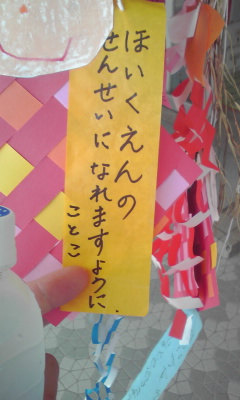 ほいくえんの
せんせいになれますように.
ことこ